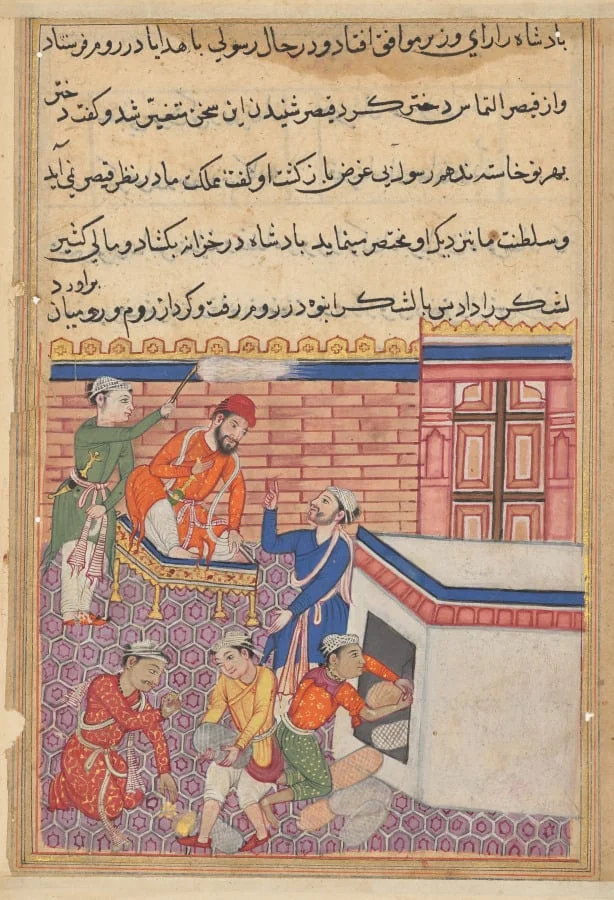 بادشاه را رای وزیر موافق افتاد و در حال رسولی با هدایا در روم فرستاد
و از قیصر التماس دختر کرد قیصر شنیدن این سخن متغیر شد و گفت دختر
بهر تو خاسته ندهم رسول بی غرض باز گشت و گفت مملکت ما در نظر قیصر نمی آید
و سلطنت ما بنزدیک او مختصر مینماید بادشاه در خزانه بکشاد و مالی کثیر
لشکر را داد پس با لشکر انبوه در روم رفت و گرد از روم و رومیان براورد